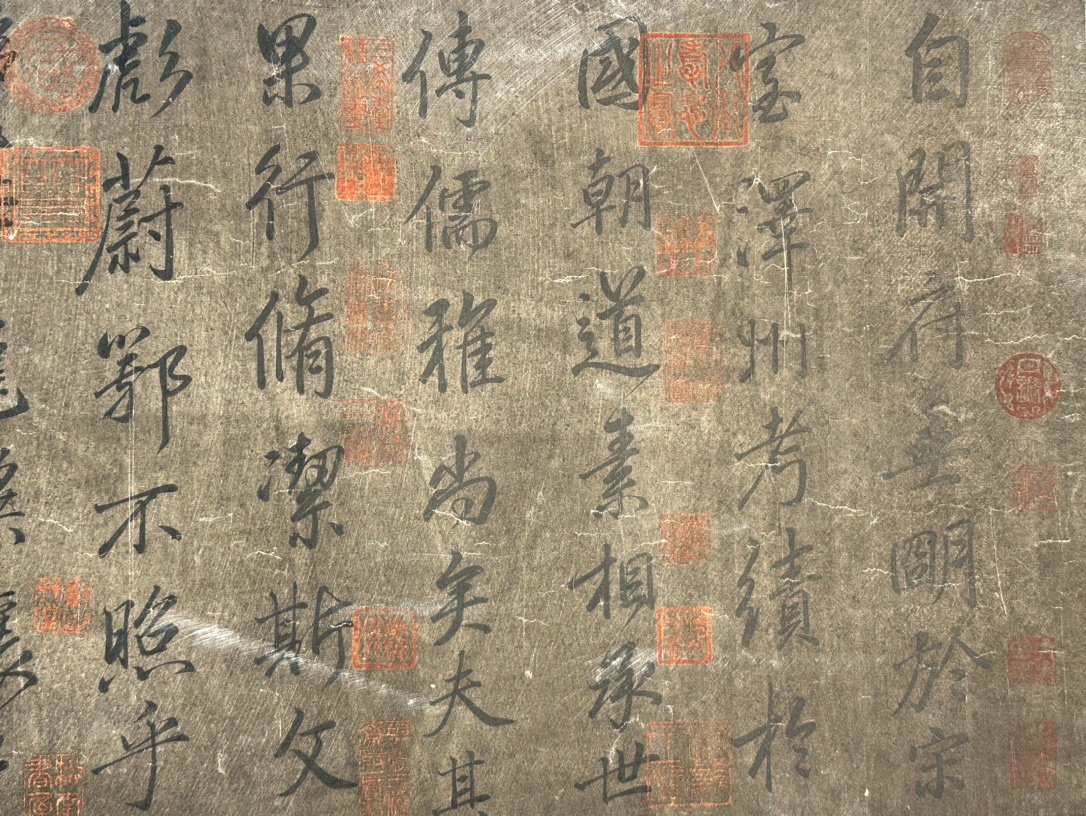 自開府垂朙於宋
室澤州考績於
國朝道素相承世
傳儒雅尚矣夫其
果行脩潔斯文
彪蔚鄂不照乎